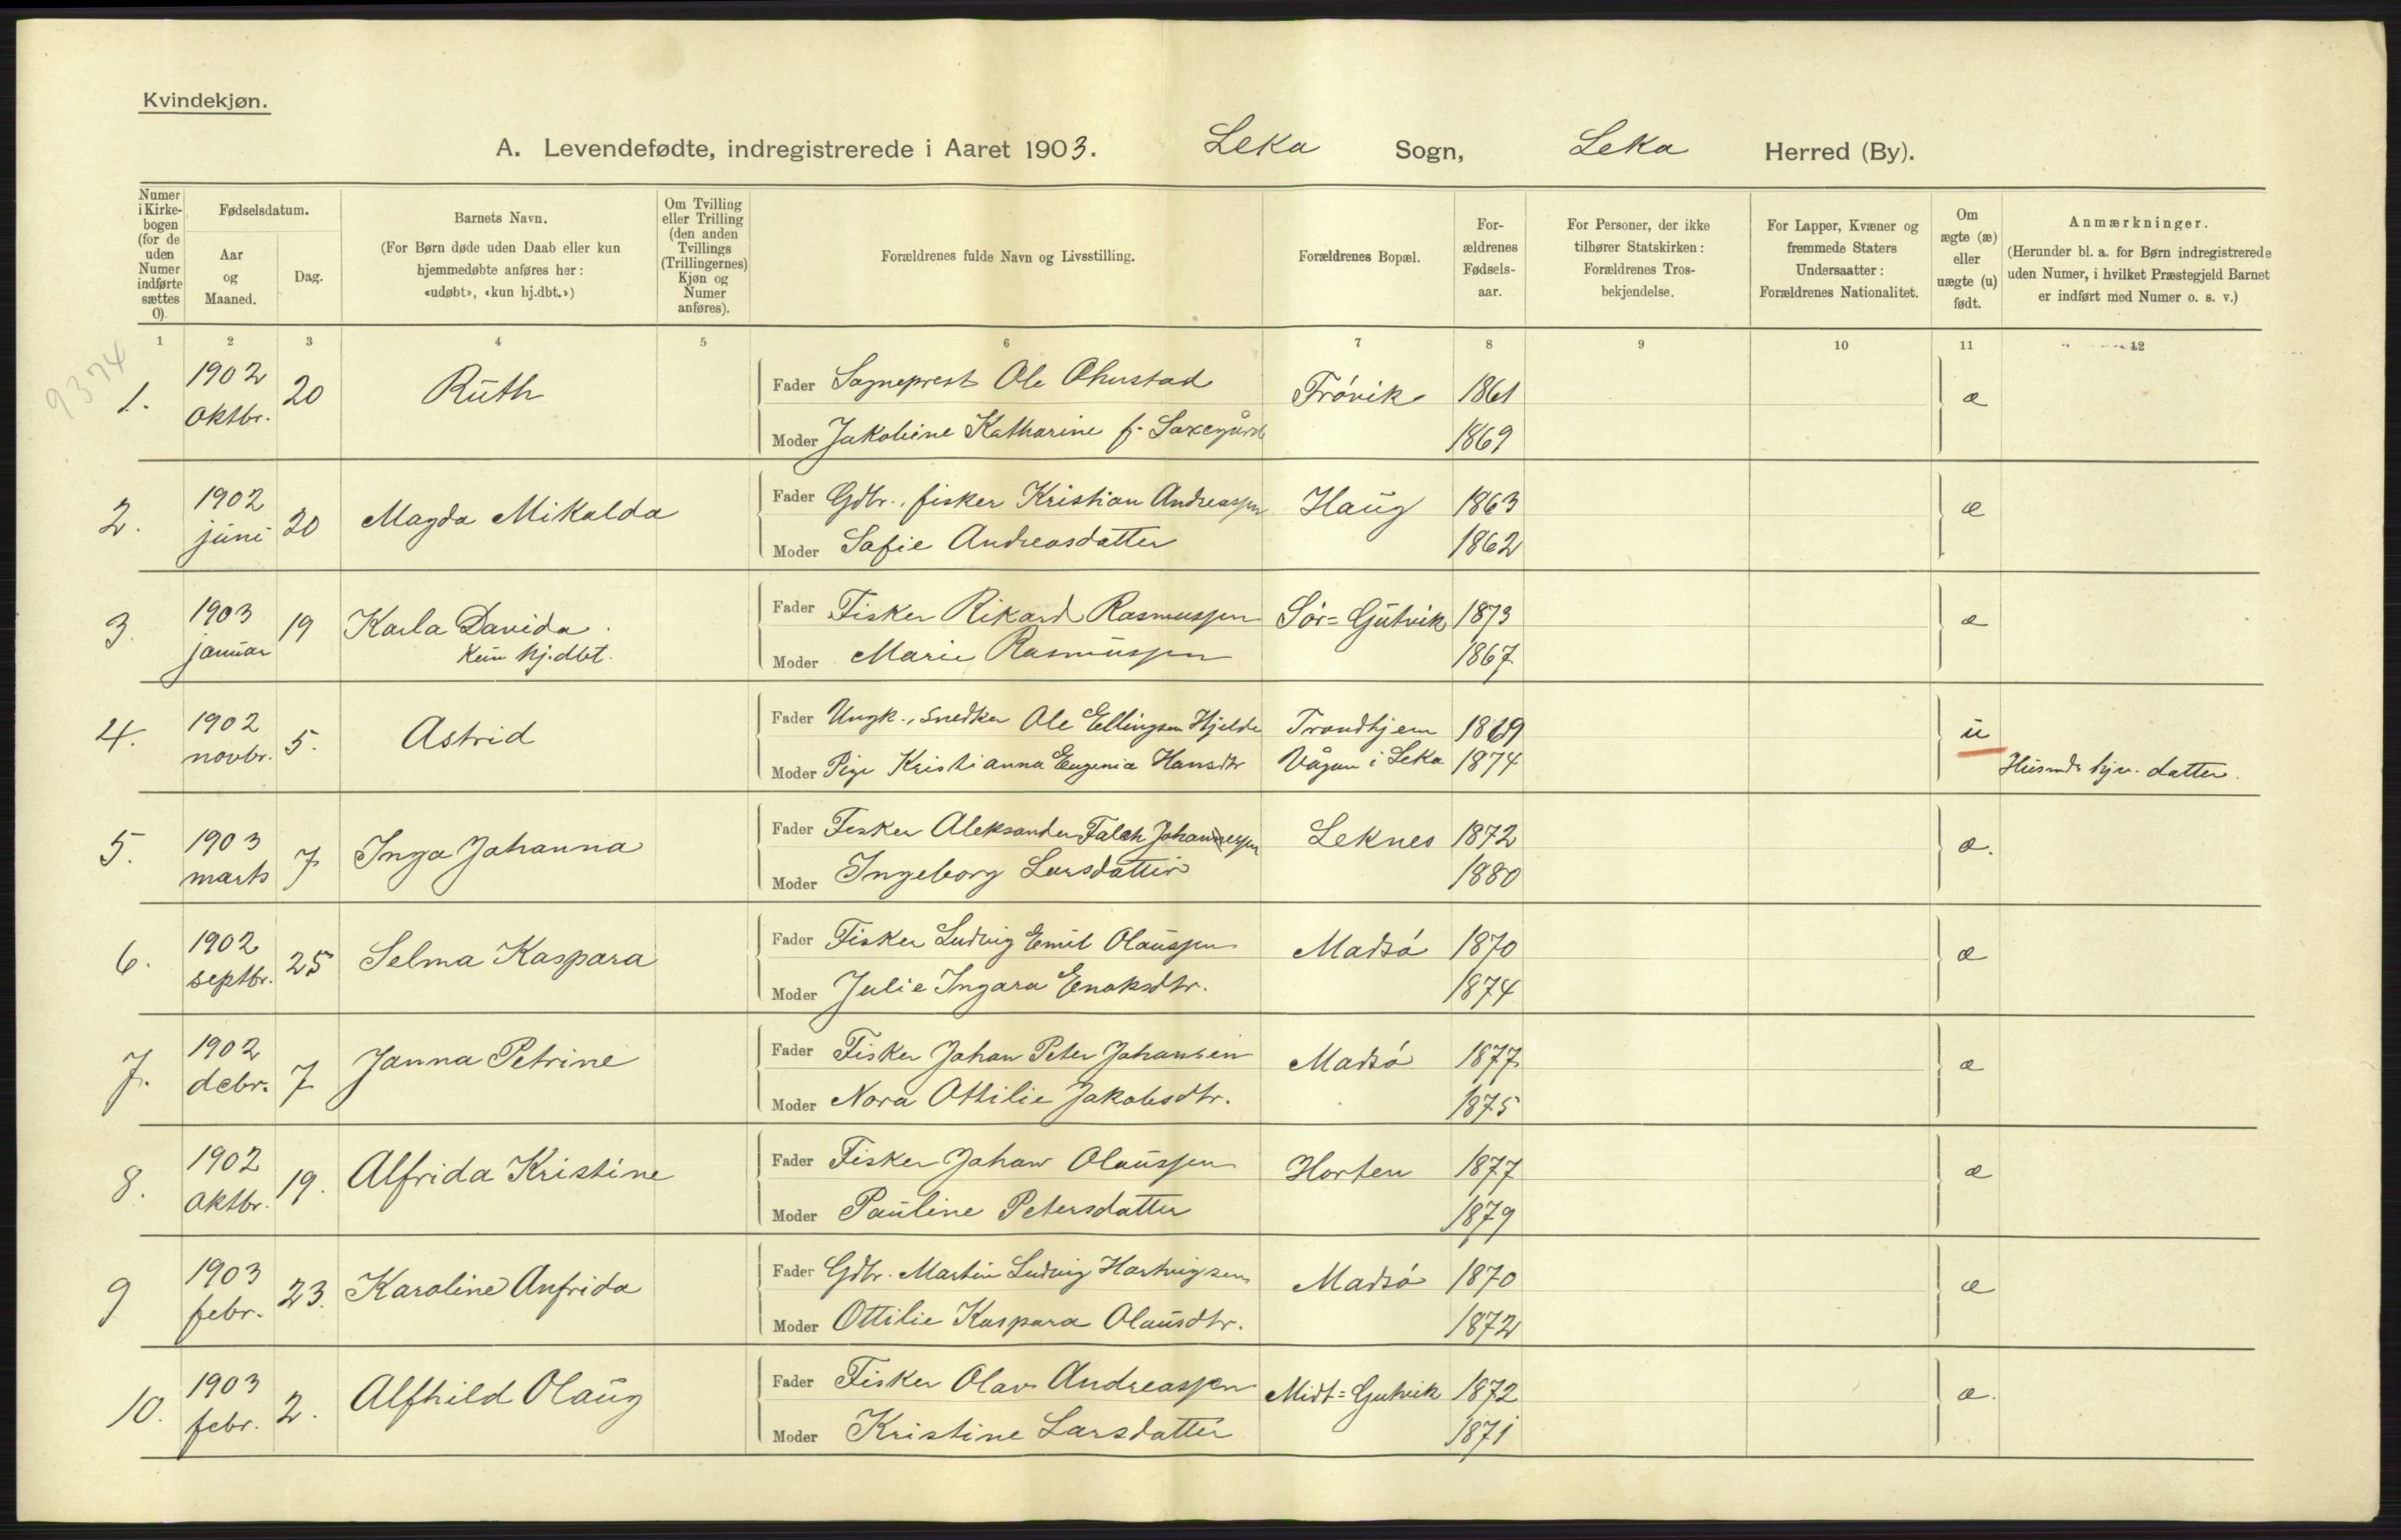 Kvindekjøn.
A. Levendefødte, indregistrerede i Aaret 1903. Leka Sogn, Leka Herred (By).
Numer i Kirkebogen (for de uden Numer indførte sættes 0).
Fødselsdatum.
Aar og Maaned.
Dag.
Barnets Navn.
(For Børn døde uden Daab eller kun hjemmedøbte anføres her: «udøbt», «kun hj.dbt.»)
Om Tvilling eller Trilling (den anden Tvillings (Trillingernes) Kjøn og Numer anføres).
Forældrenes fulde Navn og Livsstilling.
Forældrenes Bopæl.
Forældrenes Fødselsaar.
For Personer, der ikke tilhører Statskirken: Forældrenes Trosbekjendelse.
For Lapper, Kvæner og fremmede Staters Undersaatter: Forældrenes Nationalitet.
Om ægte (æ) eller uægte (u) født.
Anmærkninger.
(Herunder bl. a. for Børn indregistrerede uden Numer, i hvilket Præstegjeld Barnet er indført med Numer o. s. v.)
1 2 3 4 5 6 7 8 9 10 11 12
9374
1. 1902 oktbr. 20 Ruth Fader Sogneprest Ole Ohustad Tróvik 1861 æ
Moder Jakobine Katharine f. Saxegård 1869
2. 1902 juni 20 Magda Mikalda Fader Gdbr., fisker Kristian Andreassen Haug 1863 æ
Moder Sofie Andreasdatter 1862
3. 1903 januar 19 Karla Davida Fader Fisker Rikard Rasmussen Sór=Gutvik 1873 æ
kun hj.dbt. Moder Marie Rasmussen 1867
4. 1902 novbr. 5. Astrid Fader Ungk., snedker Ole Ellingsen Hjelde Trondhjem 1869 u
Moder Pige Kristianna Eugenia Hansdtr Vågan i Leka 1874 datter.
5. 1903 marts 7 Inga Johanna Fader Fisker Aleksander Falch Johannessen Leknes 1872 æ.
Moder Ingeborg Larsdatter 1880
6. 1902 septbr. 25 Selma Kaspara Fader Fisker Ludvig Emil Olaussen Madsó 1870 æ
Moder Julie Ingara Enoksdtr. 1874
7. 1902 debr. 7 Janna Petrine Fader Fisker Johan Peter Johansen Madsó 1877 æ
Moder Nora Ottilie Jakobsdtr. 1875
8. 1902 oktbr. 19. Alfrida Kristine Fader Fisker Johan Olaussen Horten 1877 æ
Moder Pauline Petersdatter 1879
9 1903 febr. 23. Karoline Anfrida Fader Gdbr. Martin Ludvig Hartvigsen Madsó 1870 æ
Moder Ottilie Kaspara Olausdtr. 1872
10. 1903 febr. 2. Alfhild Olaug Fader Fisker Olav Andreassen Midt=Gutvik 1872 æ.
Moder Kristine Larsdatter 1871